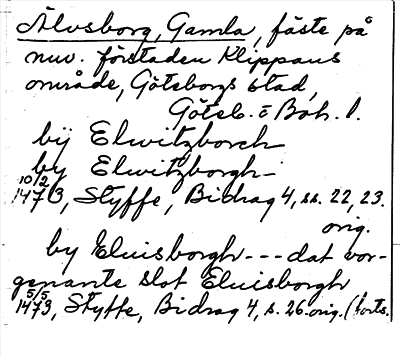 Älvsborg, Gamla, fäste på
nuv. förstaden Klippans
område, Göteborgs stad,
Göteb. o Boh. l.
bij Elwitzborch
by Elwitzborgh -
10/2 1473, Styffe, Bidrag 4, ss. 22, 23.
orig.
by Eluisborgh --- dat vor-
genante slot Eluisborgh
5/5 1473, Styffe, Bidrag 4, s. 26. orig. (forts.